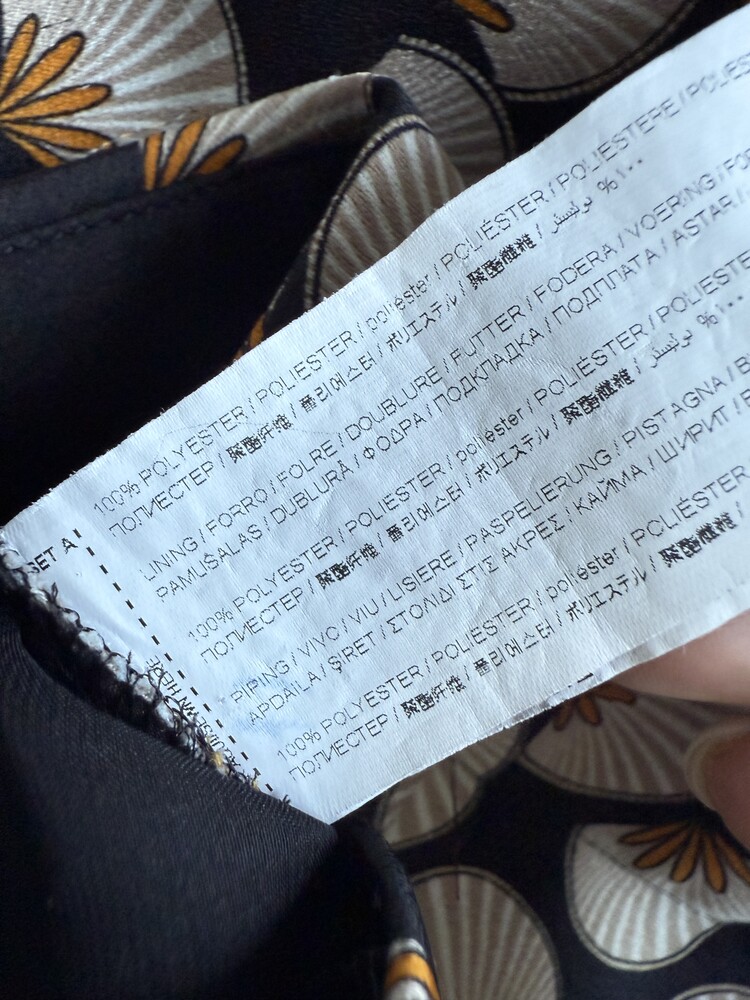 100% POLYESTER / POLIESTER / poliéster / POLIÉSTER / POLIESTERE /
ПОЛИЕСТЕР / 聚酯纤维 / 폴리에스터 / ポリエステル / 聚酯纖維 / بوليستر %١٠٠
LINING / FORRO / FOLRE / DOUBLURE / FUTTER / FODERA / VOERING /
PAMUŠALAS / DUBLURĂ / ΦΟΔΡΑ / ПОДКЛАДКА / ПОДПЛАТА / ASTAR /
100% POLYESTER / POLIESTER / poliéster / POLIÉSTER / POLIESTERE
ПОЛИЕСТЕР / 聚酯纤维 / 폴리에스터 / ポリエステル / 聚酯纖維 / بوليستر %١٠٠
PIPING / VIVO / VIU / LISIERE / PASPELIERUNG / PISTAGNA /
APDAILA / ŞIRET / ΣΤΟΛΙΔΙ ΣΤΙΣ ΑΚΡΕΣ / КАЙМА / ШИРИТ /
100% POLYESTER / POLIESTER / poliéster / POLIÉSTER
ПОЛИЕСТЕР / 聚酯纤维 / 폴리에스터 / ポリエステル / 聚酯纖維 /